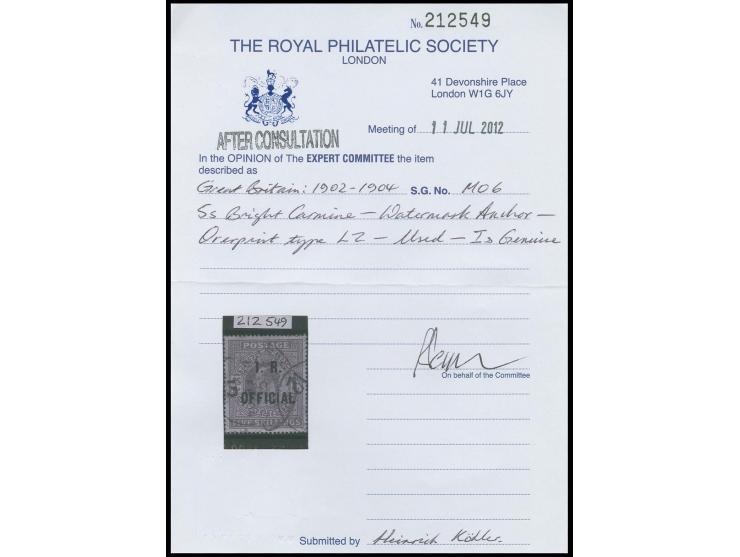 No. 212549
THE ROYAL PHILATELIC SOCIETY
LONDON
41 Devonshire Place
London W1G 6JY
AFTER CONSULTATION
Meeting of 11 JUL 2012
In the OPINION of The EXPERT COMMITTEE the item
described as
Great Britain: 1902-1904 S.G. No. MO6
5s Bright Carmine – Watermark Anchor –
Overprint type L2 – Used – Is Genuine
212 549
POSTAGE
I. R.
OFFICIAL
FIVE SHILLINGS
On behalf of the Committee
Submitted by Heinrich Köhler